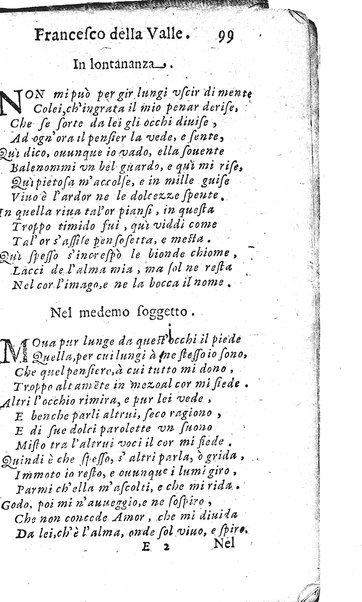 Francesco della Valle. 99
In lontananza.
NON mi può per gir lungi vscir di mente
Colei, ch'ingrata il mio penar derise,
Che se sorte da lei gli occhi diuise,
Ad ogn'ora il pensier la vede, e sente,
Quì dico, ouunque io vado, ella souente
Balenommi vn bel guardo, e quì mi rise,
Quì pietosa m'accolse, e in mille guise
Viuo è l'ardor ne le dolcezze spente.
In quella riua tal'or piansi, in questa
Troppo timido fui, quì viddi come
Tal'or s'assise pensosetta, e mesta.
Quì spesso s'increspò le bionde chiome,
Lacci de l'alma mia, ma sol ne resta
Nel cor l'imago, e ne la bocca il nome.
Nel medemo soggetto.
MOua pur lunge da quest'occhi il piede
Quella, per cui lungi à me stesso io sono,
Che quel pensiere, à cui tutto mi dono,
Troppo altamẽte in mezo al cor mi siede.
Altri l'occhio rimira, e pur lei vede,
E benche parli altrui, seco ragiono,
E di sue dolci parolette vn suono
Misto tra l'altrui voci il cor mi fiede.
Quindi è che spesso, s'altri parla, ò grida,
Immoto io resto, e ouunque i lumi giro,
Parmi ch'ella m'ascolti, e che mi rida.
Godo, poi m'auueggio, e ne sospiro,
Che non concede Amor, che mi diuida
Da lei, ch'è l'alma, onde sol viuo, e spiro.
E 2 Nel